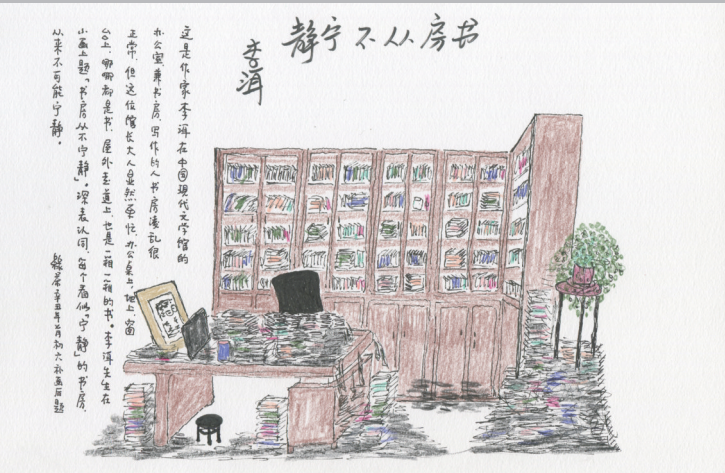 书房从不宁静
李洱
这是作家李洱在中国现代文学馆的
办公室兼书房。写作的人书房凌乱很
正常，但这位馆长大人显然更忙，办公桌上、地上、窗
台上，哪哪都是书，屋外走道上，也是一箱一箱的书。李洱先生在
小画上题「书房从不宁静」。深表认同，每个看似“宁静”的书房，
从来不可能宁静。
绿茶辛丑年月初六补画后题